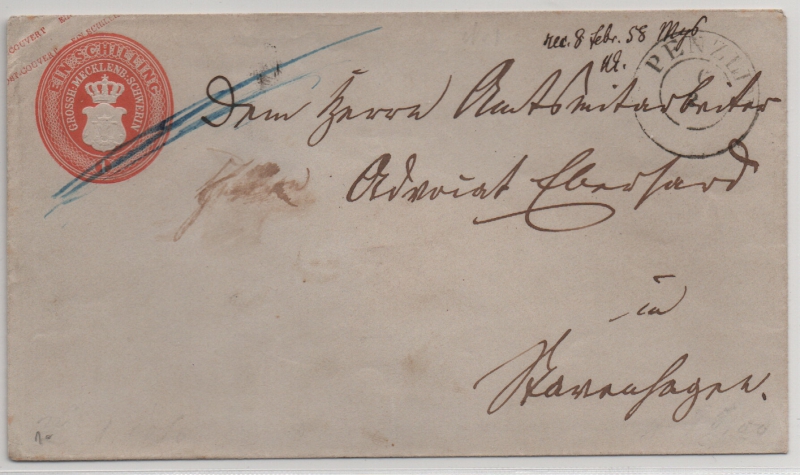 EIN SCHILLING
GROSSH. MECKLENB. SCHWERIN
rec. 8 febr. 58
PENZLIN
Dem Herrn Amtsmitarbeiter
Advocat Eberhard
in
Stavenhagen.